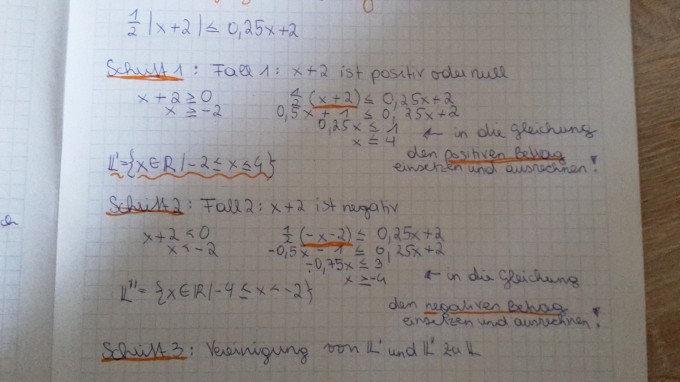 ½ |x+2| ≤ 0,25x+2
Schritt 1: Fall 1: x+2 ist positiv oder null
x+2 ≥ 0 ½ (x+2) ≤ 0,25x+2
x ≥ -2 0,5x + 1 ≤ 0,25x+2
0,25x ≤ 1 ← in die Gleichung
x ≤ 4 den positiven Betrag
L'={x∈R|-2 ≤ x ≤ 4} einsetzen und ausrechnen!
Schritt 2: Fall 2: x+2 ist negativ
x+2 < 0 ½ (-x-2) ≤ 0,25x+2
x < -2 -0,5x - 1 ≤ 0,25x+2
-0,75x ≤ 3
x ≥ -4 ← in die Gleichung
L''= {x∈R|-4 ≤ x < -2} den negativen Betrag
einsetzen und ausrechnen!
Schritt 3: Vereinigung von L' und L'' zu L